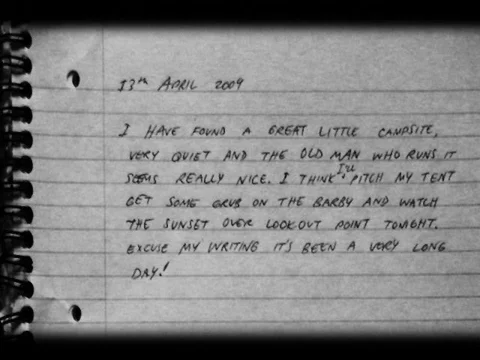 13th APRIL 2009
I HAVE FOUND A GREAT LITTLE CAMPSITE,
VERY QUIET AND THE OLD MAN WHO RUNS IT
SEEMS REALLY NICE. I THINK I'LL PITCH MY TENT
GET SOME GRUB ON THE BARBY AND WATCH
THE SUNSET OVER LOOKOUT POINT TONIGHT.
EXCUSE MY WRITING IT'S BEEN A VERY LONG
DAY!